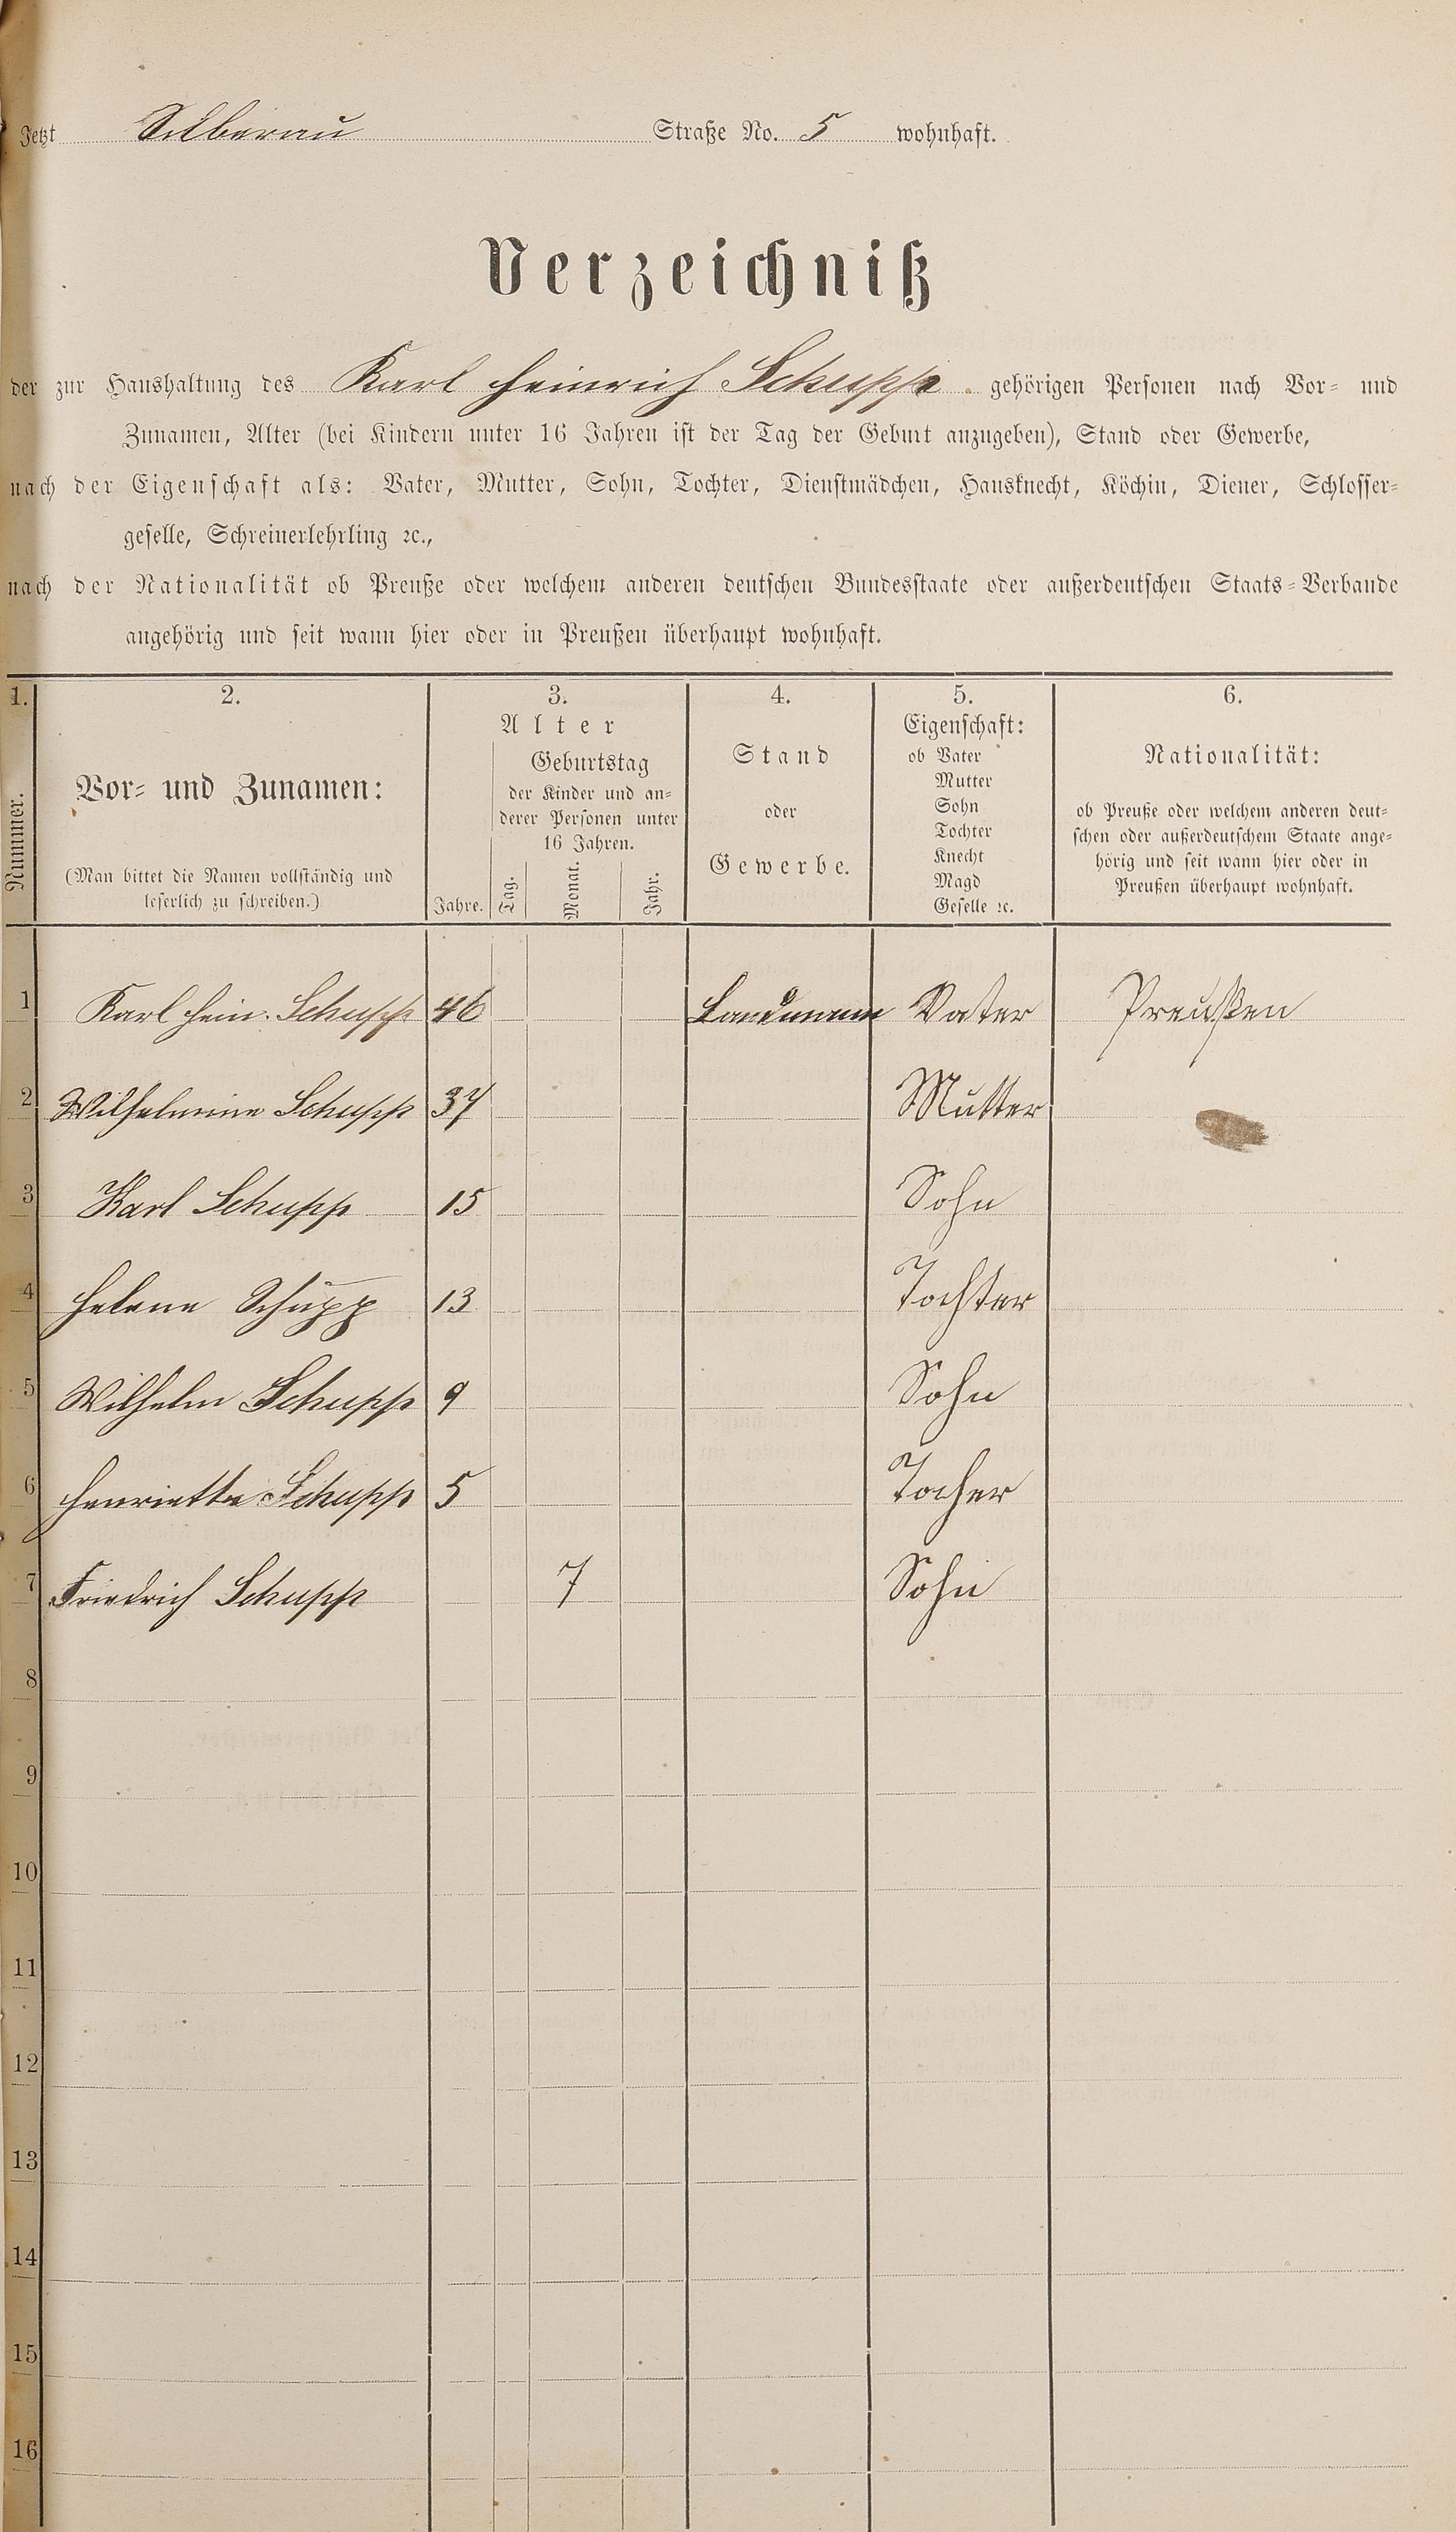 Jetzt Silberau Straße No. 5 wohnhaft.
Verzeichniß
der zur Haushaltung des Karl Heinrich Schupp gehörigen Personen nach Vor- und
Zunamen, Alter (bei Kindern unter 16 Jahren ist der Tag der Geburt anzugeben), Stand oder Gewerbe,
nach der Eigenschaft als: Vater, Mutter, Sohn, Tochter, Dienstmädchen, Hausknecht, Köchin, Diener, Schlosser-
geselle, Schreinerlehrling ꝛc.,
nach der Nationalität ob Preuße oder welchem anderen deutschen Bundesstaate oder außerdeutschen Staats-Verbande
angehörig und seit wann hier oder in Preußen überhaupt wohnhaft.
1. 2. 3. 4. 5. 6.
Nummer.
Vor- und Zunamen:
(Man bittet die Namen vollständig und
leserlich zu schreiben.)
Alter
Geburtstag
der Kinder und an-
derer Personen unter
16 Jahren.
Jahre. Tag. Monat. Jahr.
Stand
oder
Gewerbe.
Eigenschaft:
ob Vater
Mutter
Sohn
Tochter
Knecht
Magd
Geselle ꝛc.
Nationalität:
ob Preuße oder welchem anderen deut-
schen oder außerdeutschem Staate ange-
hörig und seit wann hier oder in
Preußen überhaupt wohnhaft.
1 Karl Hein. Schupp 46 Landmann Vater Preußen
2 Wilhelmine Schupp 37 Mutter
3 Karl Schupp 15 Sohn
4 Helene Schupp 13 Tochter
5 Wilhelm Schupp 9 Sohn
6 Henriette Schupp 5 Tocher
7 Friedrich Schupp 7 Sohn
8
9
10
11
12
13
14
15
16